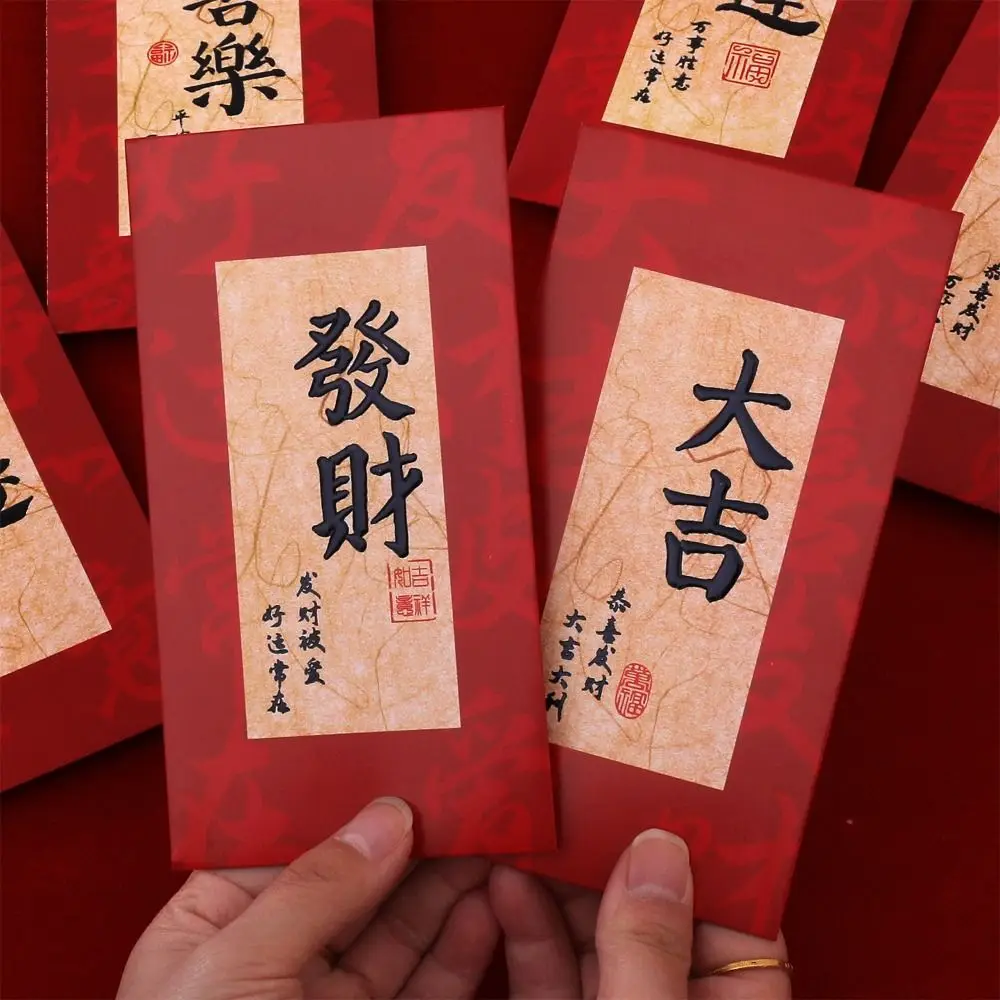 樂
平
万事胜意
好运常在
福
發財
发财被爱
好运常在
吉祥如意
大吉
恭喜发财
大吉大利
萬福
恭喜发财